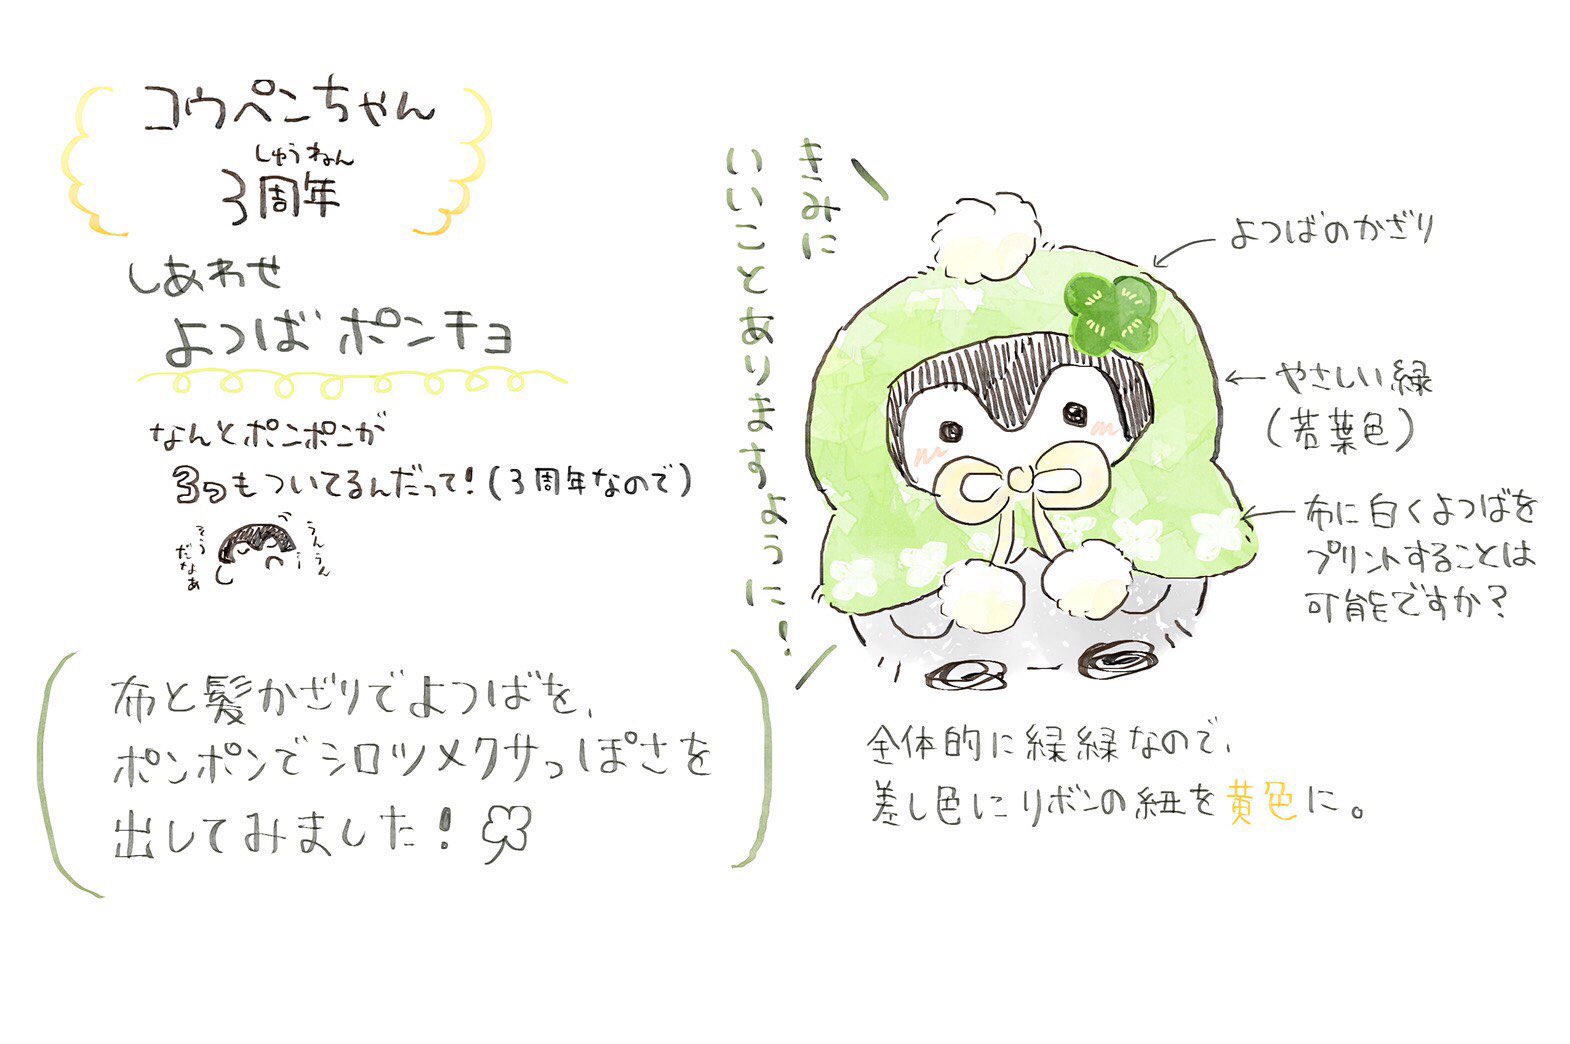 コウペンちゃん
しゅうねん
3周年
しあわせ
よつばポンチョ
なんとポンポンが
3つもついてるんだって!(3周年なので)
そう
だなぁ
うんうん
布と髪かざりでよつばを、
ポンポンでシロツメクサっぽさを
出してみました!
きみに
いいことありますように!
よつばのかざり
やさしい緑
(若葉色)
布に白くよつばを
プリントすることは
可能ですか?
全体的に緑緑なので、
差し色にリボンの紐を黄色に。